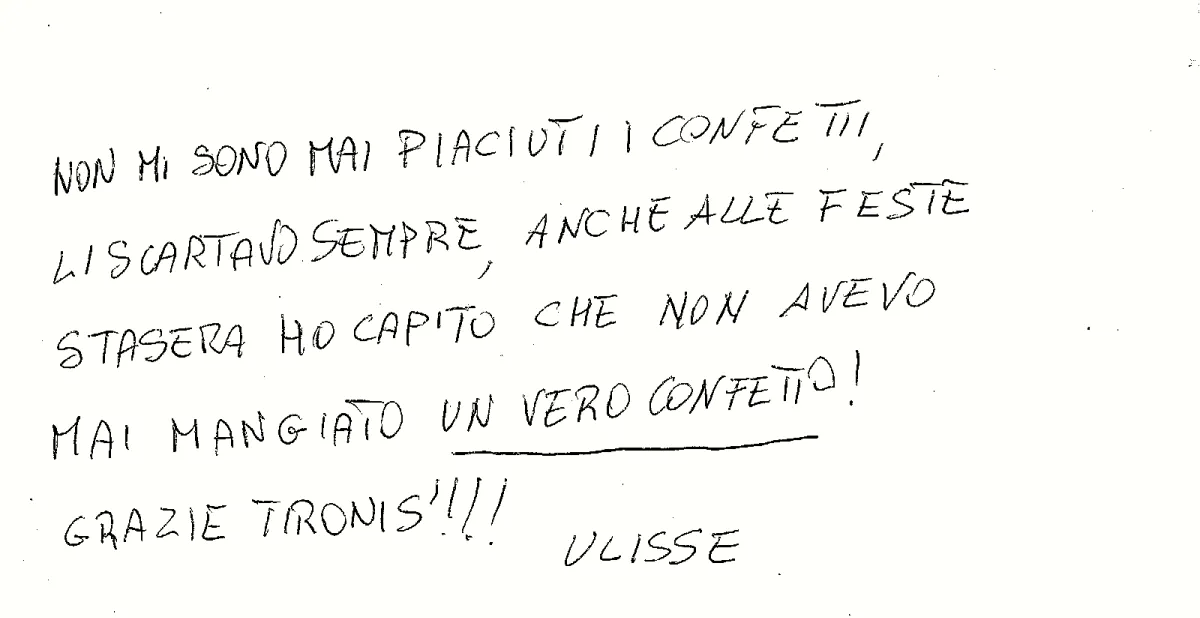 NON MI SONO MAI PIACIUTI I CONFETTI,
LI SCARTAVO SEMPRE, ANCHE ALLE FESTE
STASERA HO CAPITO CHE NON AVEVO
MAI MANGIATO UN VERO CONFETTO!
GRAZIE TIRONIS'!!!!
ULISSE